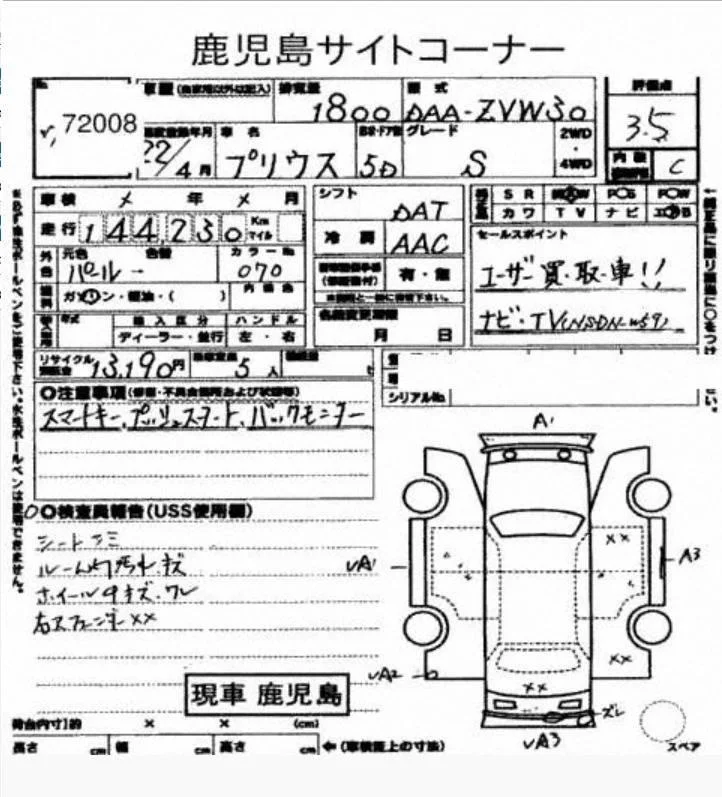 鹿児島サイトコーナー
72008
排気量 1800
型式 DAA-ZVW30
評価点 3.5
22/4月
車名 プリウス
5D
グレード S
2WD・4WD
C
車検 メ 年 メ 月
シフト DAT
S R
カ ワ T V ナ ビ
走行 144,230 Km マイル
冷房 AAC
セールスポイント
ユーザー買・取・車!!
ナビ・TV(NSDN-W59)
外色 元色 パール 色替
カラーNo 070
有・無
ガソリン・軽油・( )
内装色
月 日
年式 輸入区分 ハンドル
ディーラー・並行 左・右
リサイクル 13,190円
5人
シリアルNo
○注意事項
スマートキー、プッシュスタート、バックモニター
○検査員報告(USS使用欄)
シートシミ
ルーム内汚れキズ
ホイール4キズ・ワレ
右Rフェンダー××
A1
××
A3
××
××
ズレ
現車 鹿児島
スペア
荷台内寸)約 × × (cm)
高さ cm 幅 cm 高さ cm ←(車検証上の寸法)